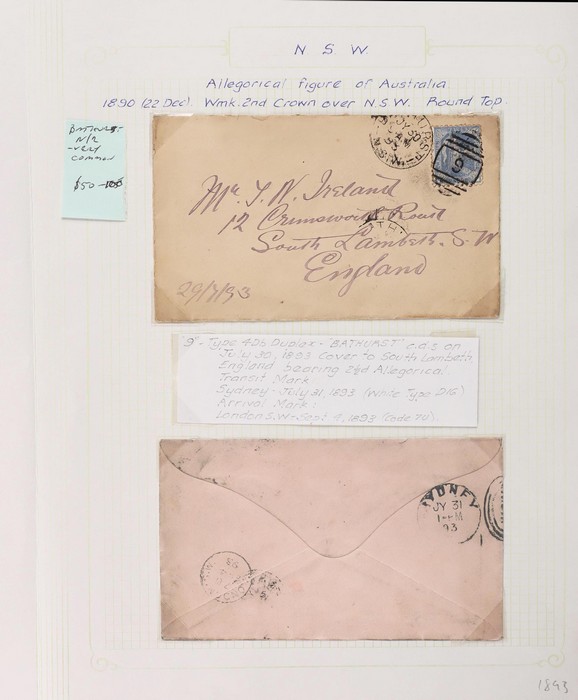 N S W.
Allegorical figure of Australia.
1890 (22 Dec). Wmk. 2nd Crown over N.S.W. Round Top.
Bathurst
N/R
-very
common
$50-
9
Mr. T. W. Ireland
12 Crimsworth Road
South Lambeth. S. W
England
29/7/93
"9" - Type 4Db Duplex - "BATHURST" c.d.s on
July 30, 1893 Cover to South Lambeth
England bearing 2½d Allegorical.
Transit Mark
Sydney - July 31, 1893 (White Type D1G)
Arrival Mark:
London S.W - Sept 4, 1893 (Code 74).
SYDNEY
JY 31
1-PM
93
1893